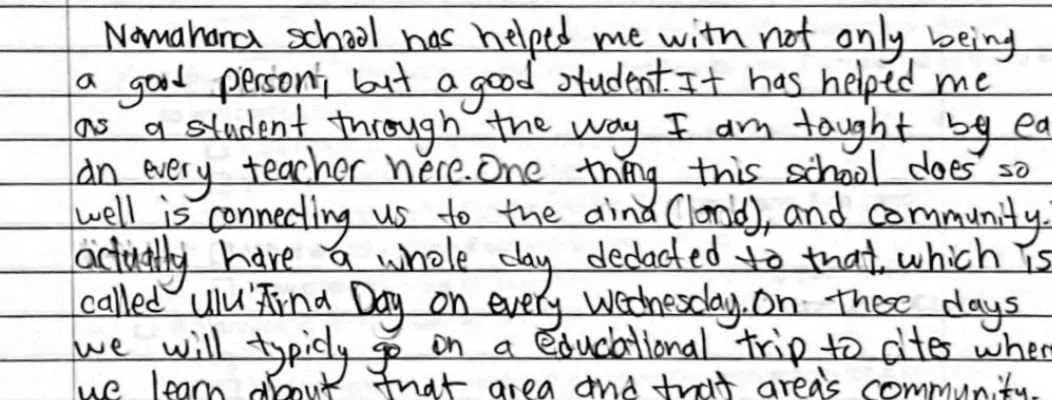 Namahana school has helped me with not only being
a good person, but a good student. It has helped me
as a student through the way I am taught by ea
an every teacher here. One thing this school does so
well is connecting us to the aina (land), and community.
actually have a whole day dedacted to that, which is
called Ulu 'Aina Day on every Wednesday. On these days
we will typicly go on a educational trip to cites wher
we learn about that area and that area's community.